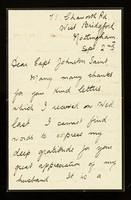 71 Chaworth Rd
West Bridgford
Nottingham
Sept 2nd
Dear Capt Johnston Saint
Many many thanks
for you kind letter
which I received on Wed
last I cannot find
words to express my
deep gratitude for your
great appreciation of my
husband. It is a